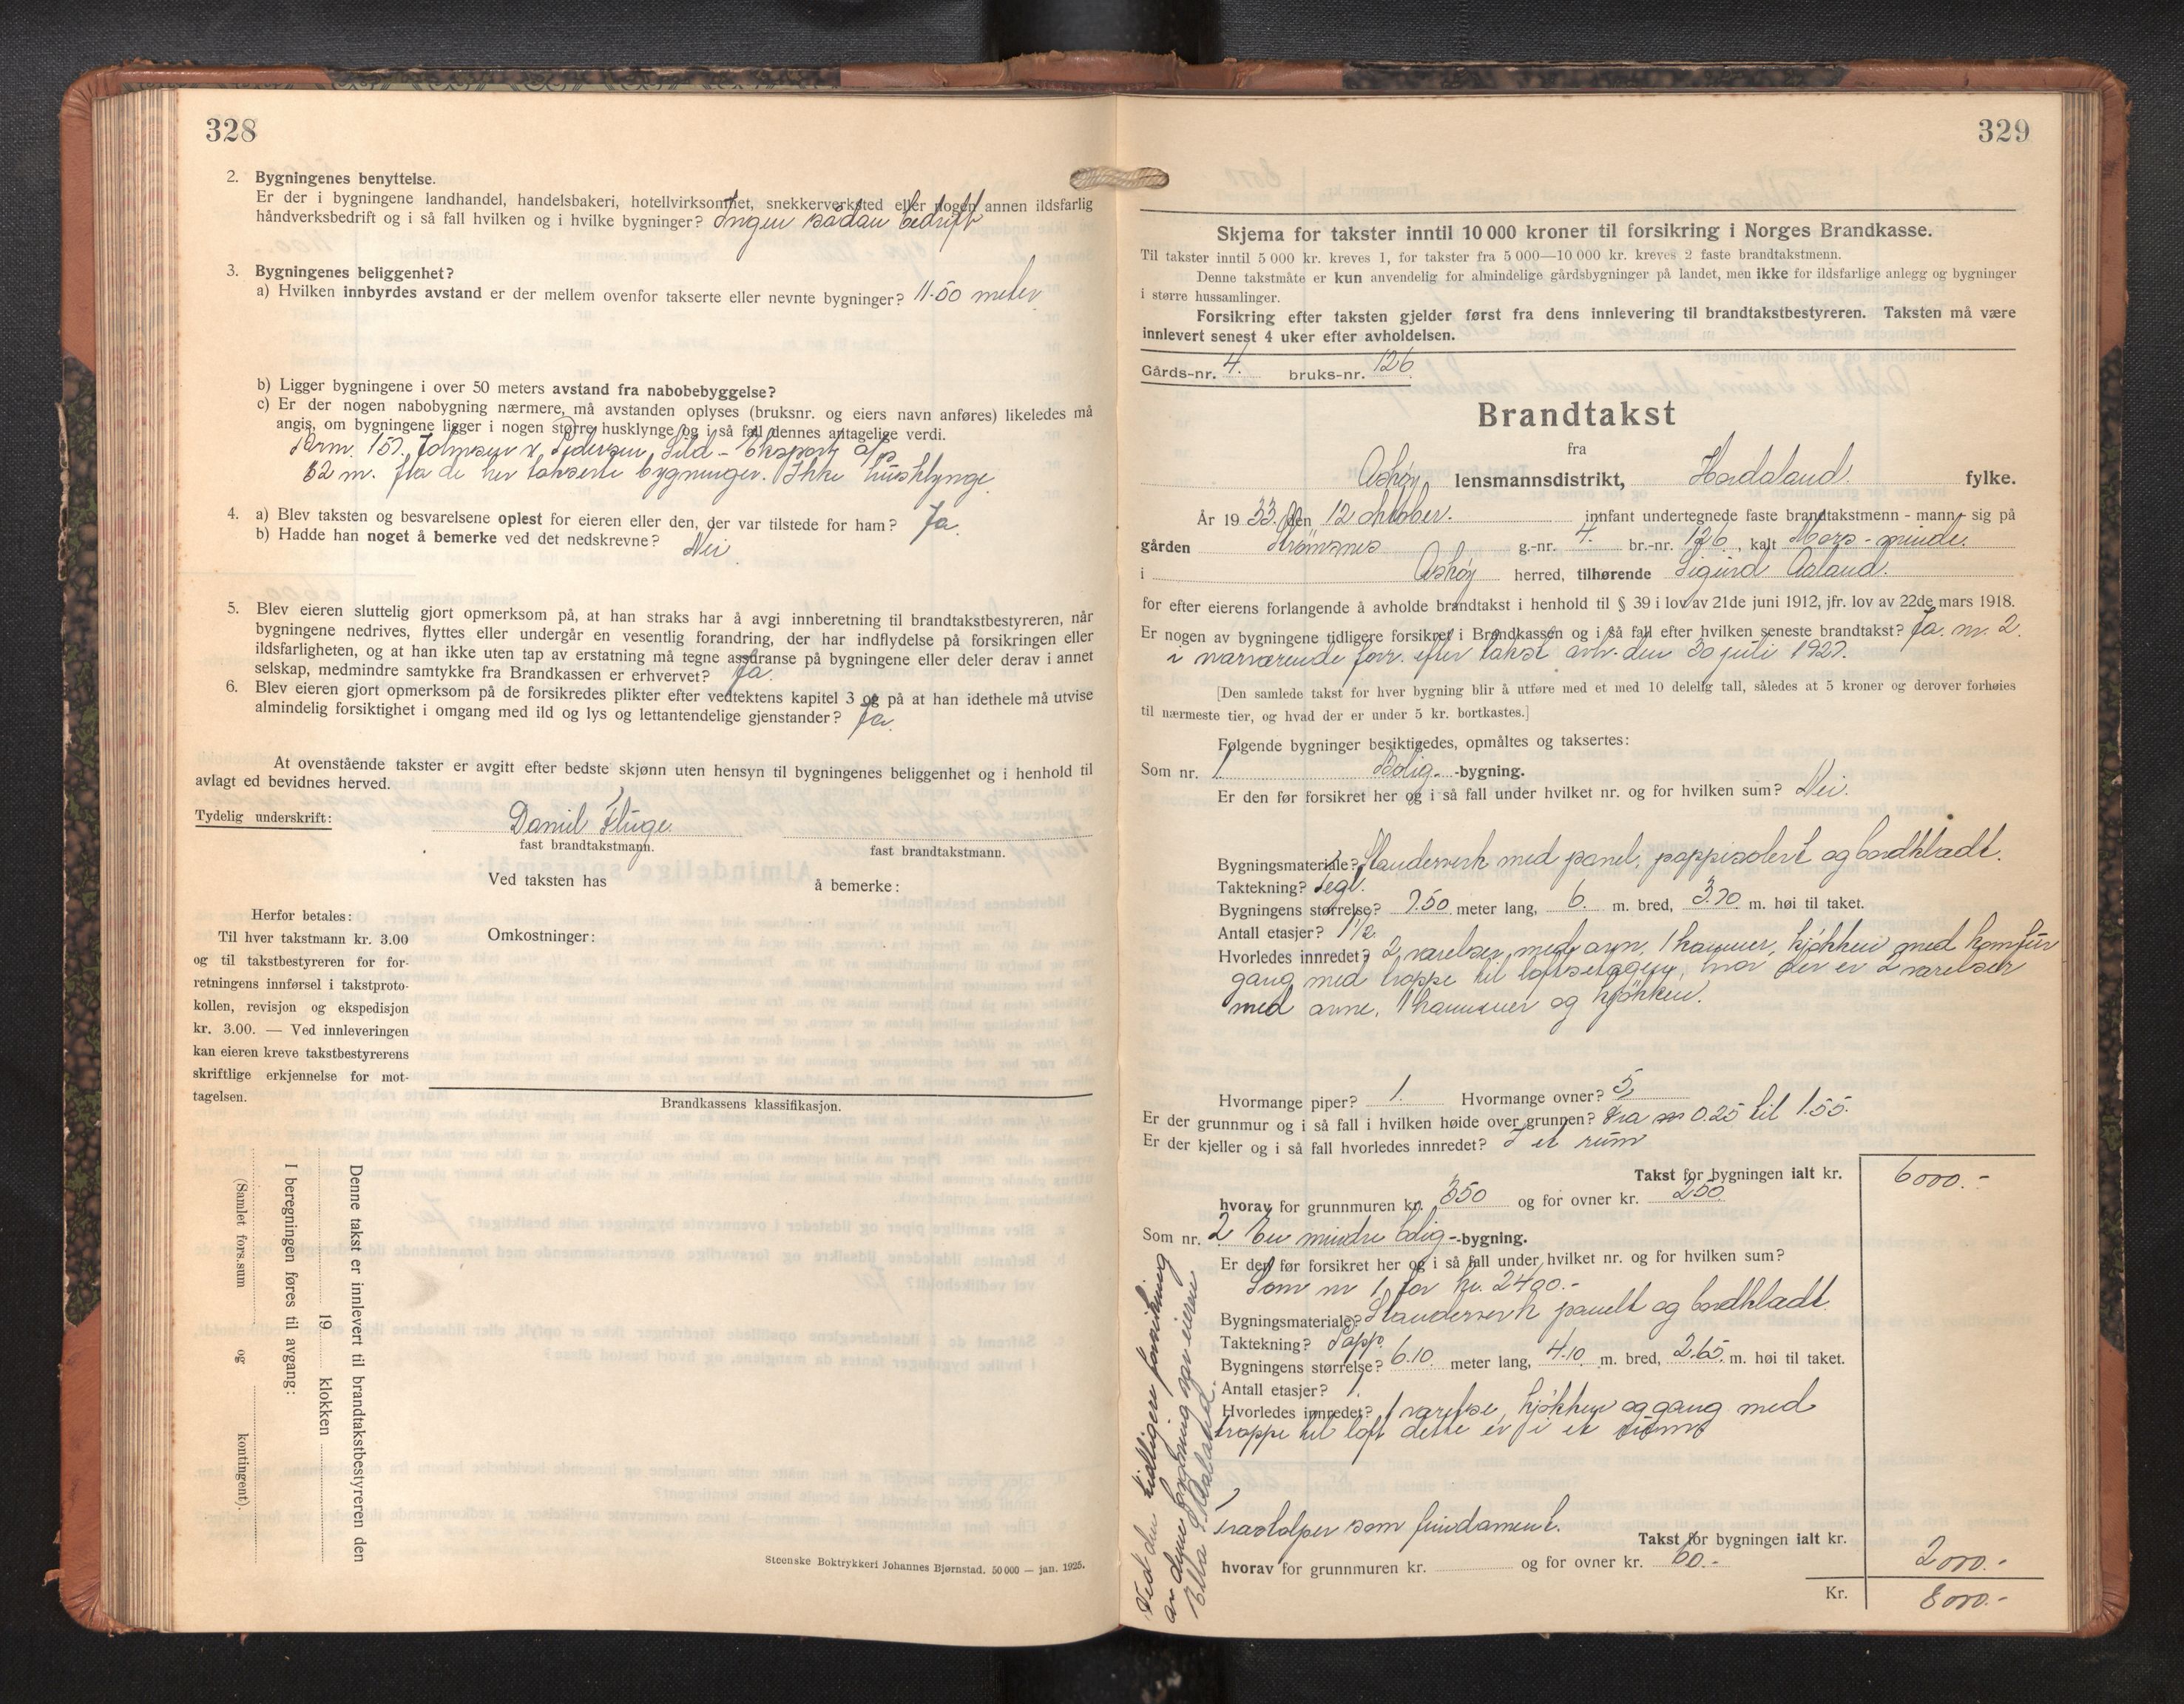 328
2. Bygningenes benyttelse.
Er der i bygningene landhandel, handelsbakeri, hotellvirksomhet, snekkerverksted eller nogen annen ildsfarlig
håndverksbedrift og i så fall hvilken og i hvilke bygninger? Ingen sådan bedrift
3. Bygningenes beliggenhet?
a) Hvilken innbyrdes avstand er der mellem ovenfor takserte eller nevnte bygninger? 11.50 meter
b) Ligger bygningene i over 50 meters avstand fra nabobebyggelse?
c) Er der nogen nabobygning nærmere, må avstanden oplyses (bruksnr. og eiers navn anføres) likeledes må
angis, om bygningene ligger i nogen større husklynge og i så fall dennes antagelige verdi.
Brnr. 157. Johnsen & Pedersen, Sild-Eksport a/s
62 m. fra de her takserte bygninger. Ikke husklynge.
4. a) Blev taksten og besvarelsene oplest for eieren eller den, der var tilstede for ham? Ja.
b) Hadde han noget å bemerke ved det nedskrevne? Nei
5. Blev eieren sluttelig gjort opmerksom på, at han straks har å avgi innberetning til brandtakstbestyreren, når
bygningene nedrives, flyttes eller undergår en vesentlig forandring, der har indflydelse på forsikringen eller
ildsfarligheten, og at han ikke uten tap av erstatning må tegne assuranse på bygningene eller deler derav i annet
selskap, medmindre samtykke fra Brandkassen er erhvervet? Ja.
6. Blev eieren gjort opmerksom på de forsikredes plikter efter vedtektens kapitel 3 og på at han idethele må utvise
almindelig forsiktighet i omgang med ild og lys og lettantendelige gjenstander? Ja.
At ovenstående takster er avgitt efter bedste skjønn uten hensyn til bygningenes beliggenhet og i henhold til
avlagt ed bevidnes herved.
Tydelig underskrift: Daniel Fluge.
fast brandtakstmann. fast brandtakstmann.
Ved taksten has å bemerke:
Herfor betales:
Til hver takstmann kr. 3.00
og til takstbestyreren for for-
retningens innførsel i takstproto-
kollen, revisjon og ekspedisjon
kr. 3.00. — Ved innleveringen
kan eieren kreve takstbestyrerens
skriftlige erkjennelse for mot-
tagelsen.
Omkostninger:
Brandkassens klassifikasjon.
Denne takst er innlevert til brandtakstbestyreren den
19 klokken
I beregningen føres til avgang:
(Samlet fors.sum og kontingent).
Steenske Boktrykkeri Johannes Bjørnstad. 50 000 — jan. 1925.
329
Skjema for takster inntil 10 000 kroner til forsikring i Norges Brandkasse.
Til takster inntil 5 000 kr. kreves 1, for takster fra 5 000—10 000 kr. kreves 2 faste brandtakstmenn.
Denne takstmåte er kun anvendelig for almindelige gårdsbygninger på landet, men ikke for ildsfarlige anlegg og bygninger
i større hussamlinger.
Forsikring efter taksten gjelder først fra dens innlevering til brandtakstbestyreren. Taksten må være
innlevert senest 4 uker efter avholdelsen.
Gårds-nr. 4. bruks-nr. 126
Brandtakst
fra
Askøy lensmannsdistrikt, Hordaland. fylke.
År 1933. den 12 oktober. innfant undertegnede faste brandtakstmenn - mann - sig på
gården Strömsnes g.-nr. 4. br.-nr. 126, kalt Mors-minde.
i Askøy herred, tilhørende Sigurd Aaland.
for efter eierens forlangende å avholde brandtakst i henhold til § 39 i lov av 21de juni 1912, jfr. lov av 22de mars 1918.
Er nogen av bygningene tidligere forsikret i Brandkassen og i så fall efter hvilken seneste brandtakst? Ja. nr. 2.
i nærværende forr. efter takst avh. den 30 juli 1927.
[Den samlede takst for hver bygning blir å utføre med et med 10 delelig tall, således at 5 kroner og derover forhøies
til nærmeste tier, og hvad der er under 5 kr. bortkastes.]
Følgende bygninger besiktigedes, opmåltes og taksertes:
Som nr. 1 Bolig- -bygning.
Er den før forsikret her og i så fall under hvilket nr. og for hvilken sum? Nei.
Bygningsmateriale? Standerverk med panel, pappisolert og bordkledt.
Taktekning? Tegl.
Bygningens størrelse? 7.50 meter lang, 6. m. bred, 3.70 m. høi til taket.
Antall etasjer? 1 1/2.
Hvorledes innredet? 2 værelser med ovn, 1 kammer, kjøkken med komfur
gang med trappe til loftsetagen, hvor der er 2 værelser
med ovne, 1 kammer og kjøkken.
Hvormange piper? 1. Hvormange ovner? 5
Er der grunnmur og i så fall i hvilken høide over grunnen? Fra 0.25 til 1.55.
Er der kjeller og i så fall hvorledes innredet? I et rum
Takst for bygningen ialt kr. 6000.-
hvorav for grunnmuren kr. 350 og for ovner kr. 250
Som nr. 2 En mindre bolig- -bygning.
Er den før forsikret her og i så fall under hvilket nr. og for hvilken sum?
Som nr 1 for kr. 2400.-
Bygningsmateriale? Standerverk panelt og bordkledt.
Taktekning? Papp.
Bygningens størrelse? 6.10. meter lang, 4.10 m. bred, 2.65. m. høi til taket.
Antall etasjer? 1.
Hvorledes innredet? 1 værelse, kjøkken og gang med
trappe til loft dette er i et rum
Træstolper som fundament.
Takst for bygningen ialt kr. 2000.-
hvorav for grunnmuren kr. og for ovner kr. 60.-
Kr. 8000.-
Ved den tidligere forsikring
av denne bygning var eieren
Aaland.